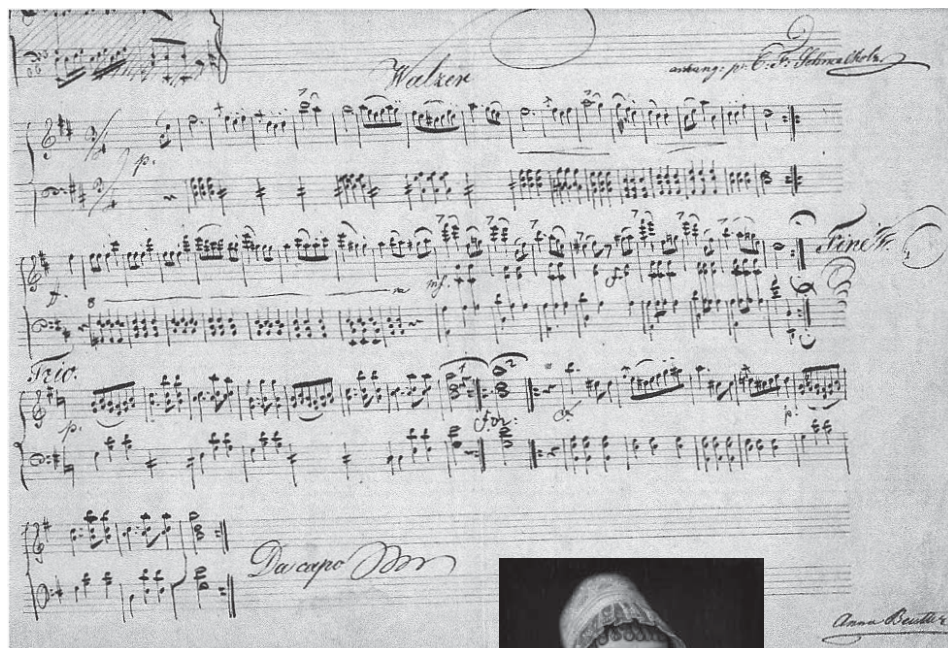 Walzer
arrang: pr: C: F: Schmalholz.
p.
Fine Tr.
mf.
Trio.
p.
for:
p:
Da capo
Anna Beutler